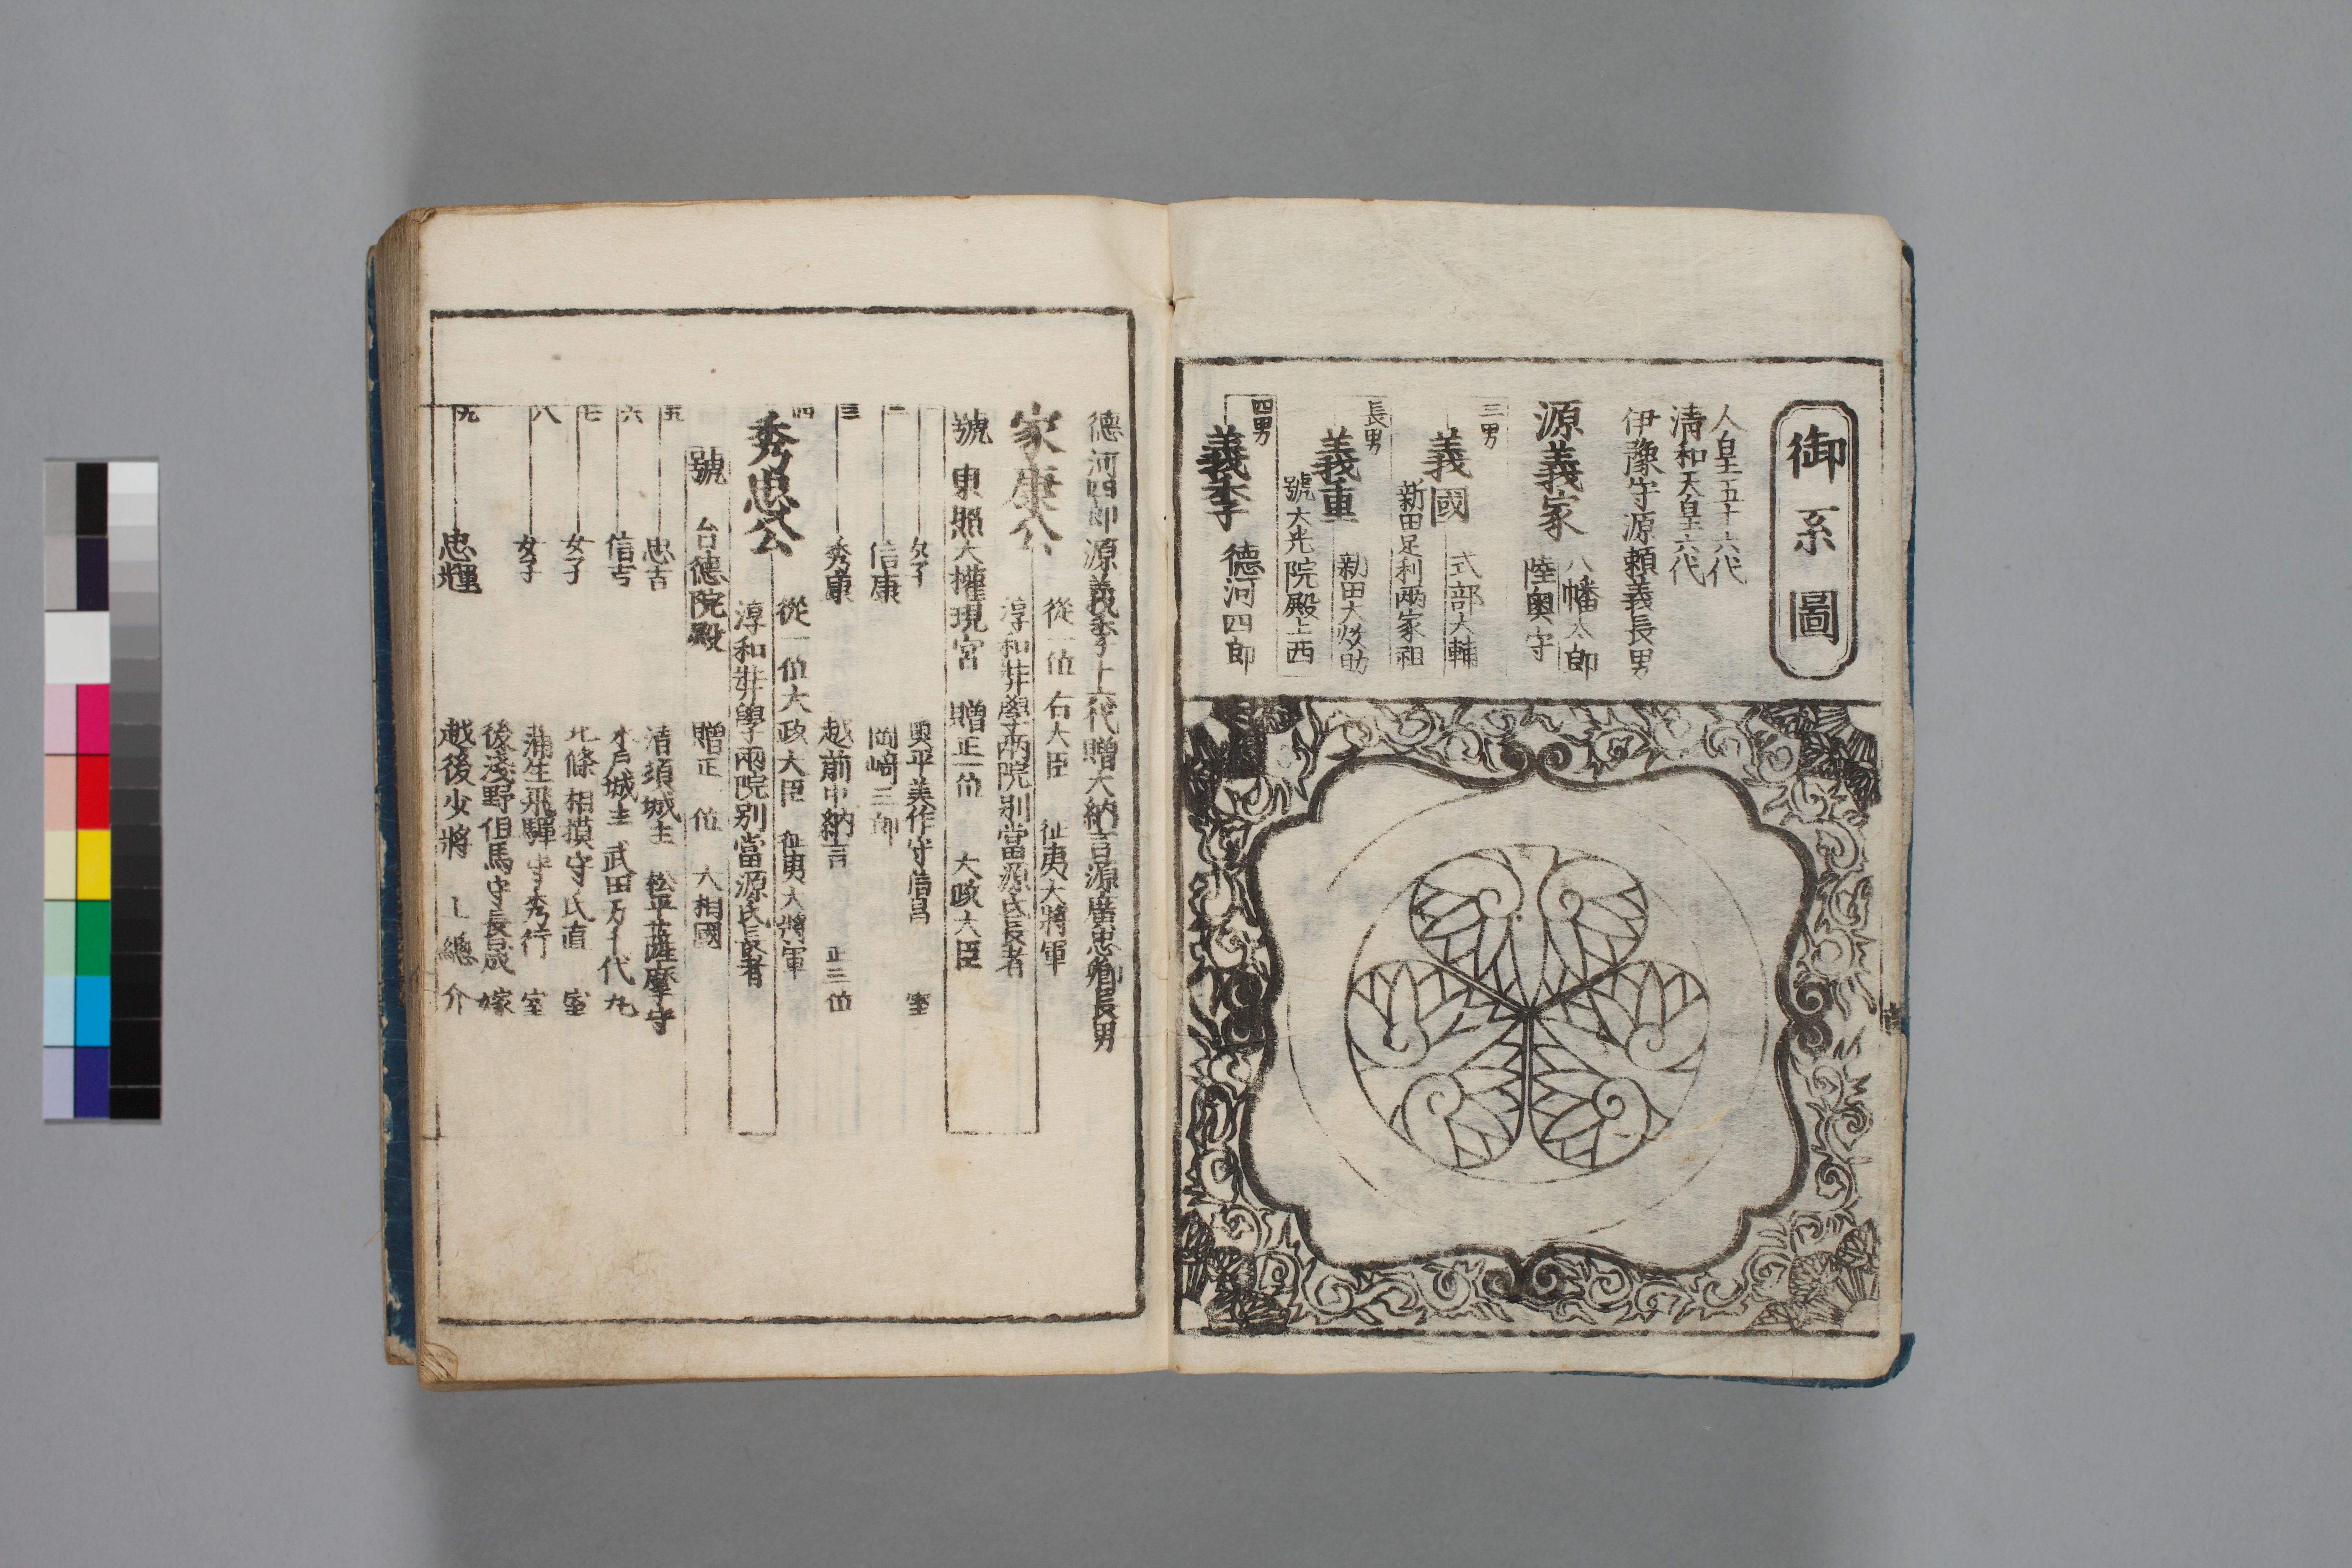 御系圖
人皇五十六代
清和天皇六代
伊豫守源頼義長男
源義家
八幡太郎
陸奥守
三男
義國
式部大輔
新田足利兩家祖
長男
義重
新田大炊助
號大光院殿上西
四男
義季
德河四郎
德河四郎源義季十六代贈大納言源廣忠卿長男
家康公
從一位右大臣
征夷大將軍
淳和弉學两院別當源氏長者
號東照大權現宮
贈正一位
大政大臣
一
女子
奥平美作守信昌
室
二
信康
岡﨑三郎
三
秀康
越前中納言
正三位
四
秀忠公
從一位大政大臣
征夷大將軍
淳和弉學兩院別當源氏長者
號
台德院殿
贈正一位
大相國
五
忠吉
清須城主
松平薩摩守
六
信吉
水戸城主
武田万千代丸
七
女子
北條相摸守氏直
室
八
女子
蒲生飛驒守秀行
室
後淺野但馬守長晟
嫁
九
忠輝
越後少將
上總介